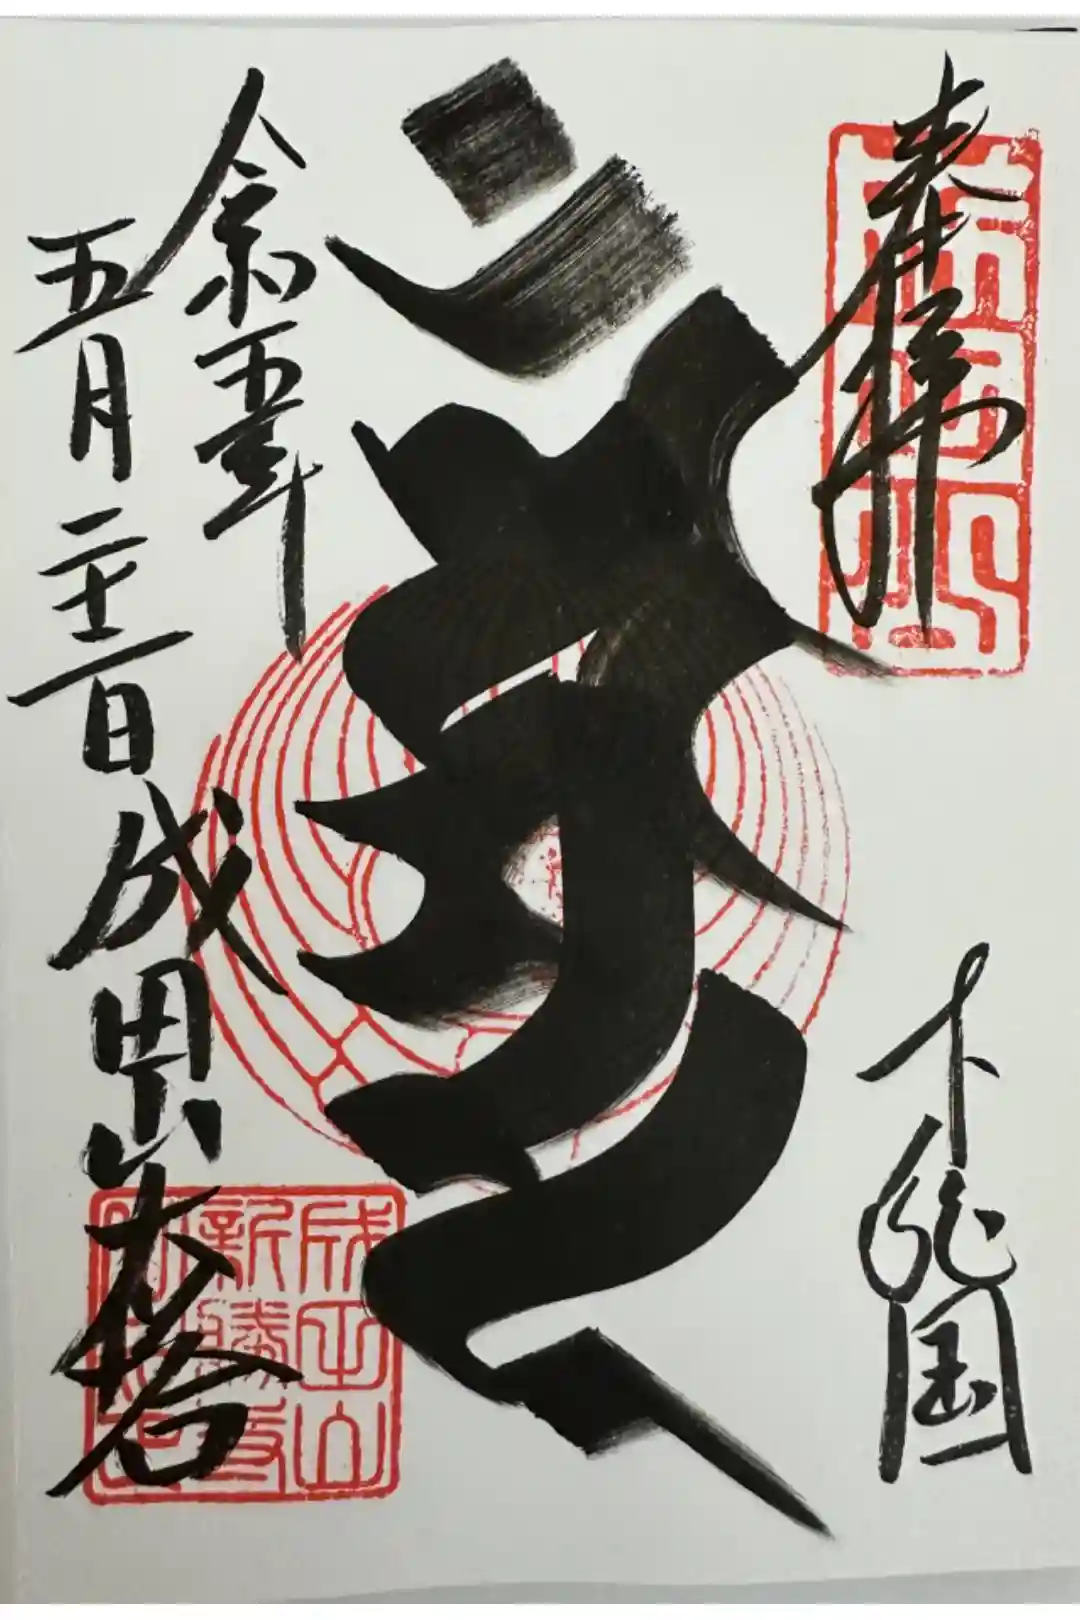 奉拝
下総国
令和五年
五月二十二日
成田山大塔
成田山
新勝寺